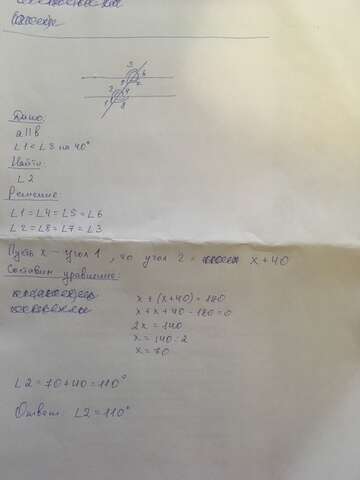 3 6
5 7
2 4
1 8
Дано:
a||b
L1 < L3 на 40°
Найти:
L2
Решение:
L1 = L4 = L5 = L6
L2 = L8 = L7 = L3
Пусть x - угол 1, то угол 2 = x + 40
Составим уравнение:
x + (x+40) = 180
x + x + 40 - 180 = 0
2x = 140
x = 140 : 2
x = 70
L2 = 70 + 40 = 110°
Ответ: L2 = 110°